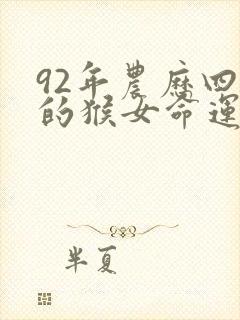 92年農曆四
的猴女命運
半夏